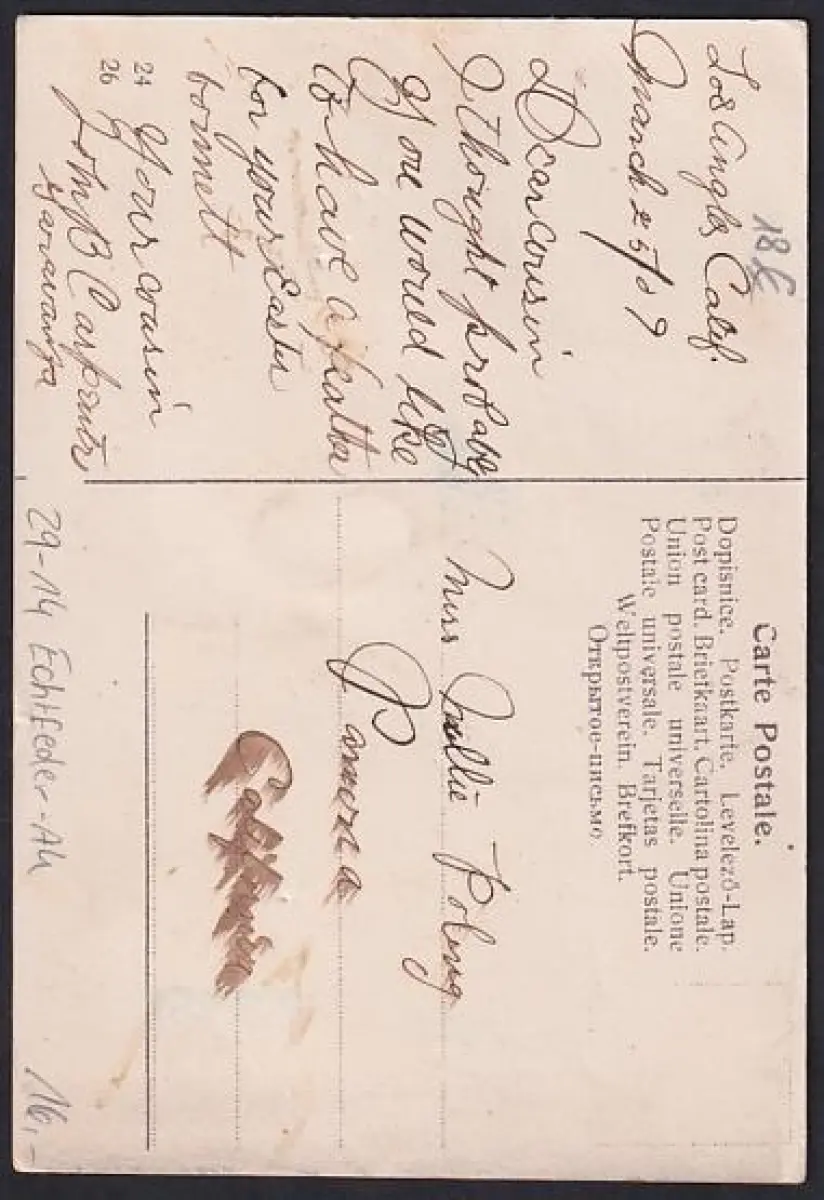 Los Angles Calif.
March 25/09
Dear cousin
I thought probably
You would like
to have a feather
for your Easter
bonnett
Your cousin
John B Carpenter
24
26
18£
Carte Postale.
Dopisnice. Postkarte. Levelező-Lap.
Post card. Briefkaart. Cartolina postale.
Union postale universelle. Unione
Postale universale. Tarjetas postale.
Weltpostverein. Brefkort.
Открытое-письмо
Miss Mollie Poling
Pomona
California
29-14 Echtfeder-Ak
16,-